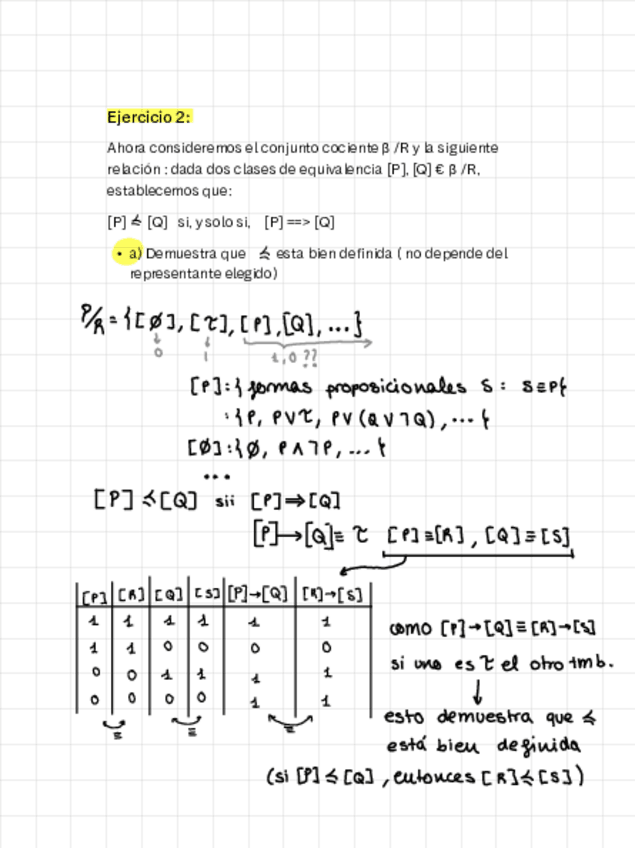 Ejercicio 2:
Ahora consideremos el conjunto cociente β /R y la siguiente
relación : dada dos clases de equivalencia [P], [Q] € β /R,
establecemos que:
[P] ≼ [Q] si, y solo si, [P] ==> [Q]
• a) Demuestra que ≼ esta bien definida ( no depende del
representante elegido)
P/R = {[∅], [τ], [P], [Q], ...}
0 1 1,0 ??
[P]:{ formas proposicionales S : S≡P}
:{P, P∨τ, P∨(Q∨¬Q), ... }
[∅]:{∅, P∧¬P, ... }
...
[P] ≼ [Q] sii [P]⇒[Q]
[P]→[Q]≡ τ [P]≡[R] , [Q]≡[S]
[P] [R] [Q] [S] [P]→[Q] [R]→[S]
1 1 1 1 1 1
1 1 0 0 0 0
0 0 1 1 1 1
0 0 0 0 1 1
≡ ≡ ≡
como [P]→[Q]≡[R]→[S]
si uno es τ el otro tmb.
↓
esto demuestra que ≼
está bien definida
(si [P]≼[Q] , entonces [R]≼[S])